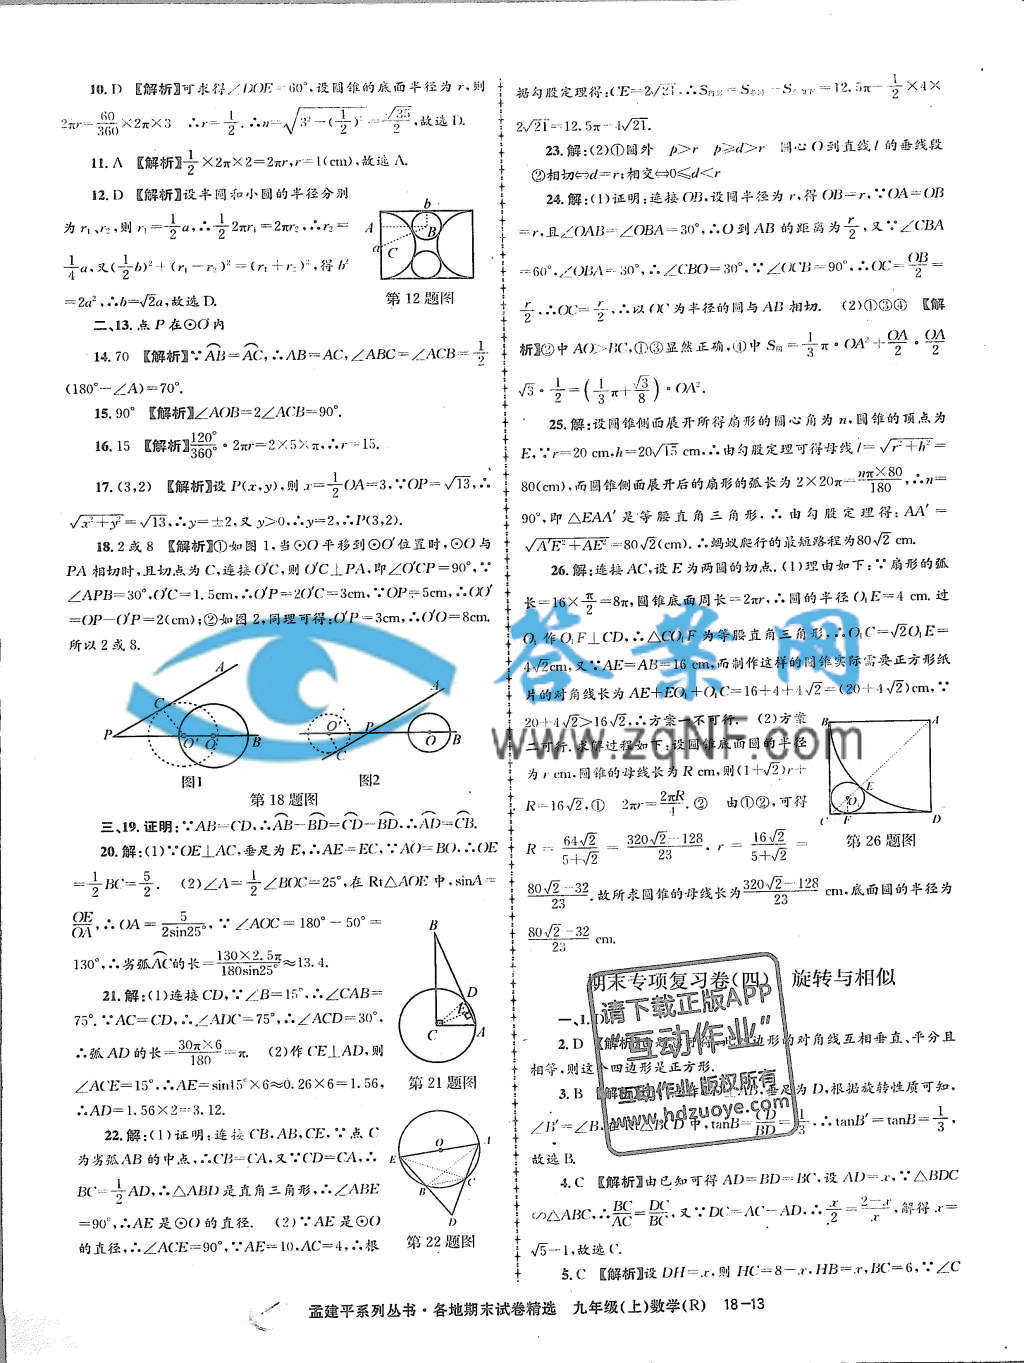 10. D 【解析】可求得∠DOE=60°,设圆锥的底面半径为r,则
2πr=60/360×2π×3 ∴r=1/2.∴h=√(3²-(1/2)²)=√35/2,故选D.
11. A 【解析】1/2×2π×2=2πr,r=1(cm),故选A.
12. D 【解析】设半圆和小圆的半径分别
为r₁、r₂,则r₁=1/2a,∴1/2·2πr₁=2πr₂,∴r₂=
1/4a,又(1/2b)²+(r₁-r₂)²=(r₁+r₂)²,得b²
=2a²,∴b=√2a,故选D.
b
A
B
a
C
第12题图
二、13. 点P在⊙O内
14. 70 【解析】∵AB=AC,∴AB=AC,∠ABC=∠ACB=1/2
(180°-∠A)=70°.
15. 90° 【解析】∠AOB=2∠ACB=90°.
16. 15 【解析】120°/360°·2πr=2×5×π,∴r=15.
17. (3,2) 【解析】设P(x,y),则x=1/2OA=3,∵OP=√13,∴
√(x²+y²)=√13,∴y=±2,又y>0,∴y=2,∴P(3,2).
18. 2或8 【解析】①如图1,当⊙O平移到⊙O′位置时,⊙O与
PA相切时,且切点为C,连接O′C,则O′C⊥PA,即∠O′CP=90°,∵
∠APB=30°,O′C=1.5cm,∴O′P=2O′C=3cm,∵OP=5cm,∴OO′
=OP-O′P=2(cm);②如图2,同理可得:O′P=3cm,∴O′O=8cm.
所以2或8.
A
C
P
O′
O
B
图1
A
O′
P
C
O
B
图2
第18题图
三、19. 证明:∵AB=CD,∴AB-BD=CD-BD,∴AD=CB.
20. 解:(1)∵OE⊥AC,垂足为E,∴AE=EC,∵AO=BO,∴OE
=1/2BC=5/2. (2)∠A=1/2∠BOC=25°,在Rt△AOE中,sinA=
OE/OA,∴OA=5/2sin25°,∵∠AOC=180°-50°=
130°,∴劣弧AC的长=130×2.5π/180sin25°≈13.4.
21. 解:(1)连接CD,∵∠B=15°,∴∠CAB=
75°.∵AC=CD,∴∠ADC=75°,∴∠ACD=30°,
∴弧AD的长=30π×6/180=π. (2)作CE⊥AD,则
∠ACE=15°,∴AE=sin15°×6≈0.26×6=1.56,
∴AD=1.56×2=3.12.
B
D
C
A
第21题图
22. 解:(1)证明:连接CB,AB,CE,∵点C
为劣弧AB的中点,∴CB=CA,又∵CD=CA,∴
BC=1/2AD,∴△ABD是直角三角形,∴∠ABE
=90°,∴AE是⊙O的直径. (2)∵AE是⊙O
的直径,∴∠ACE=90°,∵AE=10,AC=4,∴根
O
A
E
B
C
D
第22题图
据勾股定理得:CE=2√21.∴S阴影=S半圆-S△ACE=12.5π-1/2×4×
2√21=12.5π-4√21.
23. 解:(2)①圆外 p>r p≥d>r 圆心O到直线l的垂线段
②相切⇔d=r;相交⇔0≤d<r
24. 解:(1)证明:连接OB,设圆半径为r,得OB=r,∵OA=OB
=r,且∠OAB=∠OBA=30°,∴O到AB的距离为r/2,又∵∠CBA
=60°,∠OBA=30°,∴∠CBO=30°,∵∠OCB=90°,∴OC=OB/2=
r/2.∴OC=r/2,∴以OC为半径的圆与AB相切. (2)①③④ 【解
析】②中AO>BC,①③显然正确,④中S扇=1/3π·OA²+OA/2·OA/2
√3·1/2=(1/3π+√3/8)·OA².
25. 解:设圆锥侧面展开所得扇形的圆心角为n,圆锥的顶点为
E,∵r=20 cm,h=20√15 cm,∴由勾股定理可得母线l=√(r²+h²)=
80(cm),而圆锥侧面展开后的扇形的弧长为2×20π=nπ×80/180,∴n=
90°,即△EAA′是等腰直角三角形,∴由勾股定理得:AA′=
√(A′E²+AE²)=80√2(cm).∴蚂蚁爬行的最短路程为80√2 cm.
26. 解:连接AC,设E为两圆的切点.(1)理由如下:∵扇形的弧
长=16×π/2=8π,圆锥底面周长=2πr,∴圆的半径O₁E=4 cm.过
O₁作O₁F⊥CD,∴△CO₁F为等腰直角三角形,∴O₁C=√2O₁E=
4√2cm,又∵AE=AB=16 cm,而制作这样的圆锥实际需要正方形纸
片的对角线长为AE+EO₁+O₁C=16+4+4√2=(20+4√2)cm,∵
20+4√2>16√2,∴方案一不可行. (2)方案
二可行.求解过程如下:设圆锥底面圆的半径
为r cm,圆锥的母线长为R cm,则(1+√2)r+
R=16√2,① 2πr=2πR/4.② 由①②,可得
R=64√2/(5+√2)=(320√2-128)/23.r=16√2/(5+√2)=
(80√2-32)/23.故所求圆锥的母线长为(320√2-128)/23 cm,底面圆的半径为
(80√2-32)/23 cm.
B
A
E
O₁
C
F
D
第26题图
期末专项复习卷(四) 旋转与相似
一、1. D
2. D 【解析】四边形的对角线互相垂直、平分且
相等,则这个四边形是正方形.
3. B 【解析】垂足为D,根据旋转性质可知,
∠B′=∠B,在Rt△BCD中,tanB=CD/BD=1/3,∴tanB′=tanB=1/3,
故选B.
4. C 【解析】由已知可得AD=BD=BC,设AD=x,∵△BDC
∽△ABC,∴BC/AC=DC/BC,又∵DC=AC-AD,∴x/2=(2-x)/x,解得x=
√5-1,故选C.
5. C 【解析】设DH=x,则HC=8-x,HB=x,BC=6,∵∠C
答案网
www.zqNF.com
请下载正版APP
"互动作业"
互动作业 版权所有
www.hdzuoye.com
孟建平系列丛书·各地期末试卷精选 九年级(上)数学(R) 18-13